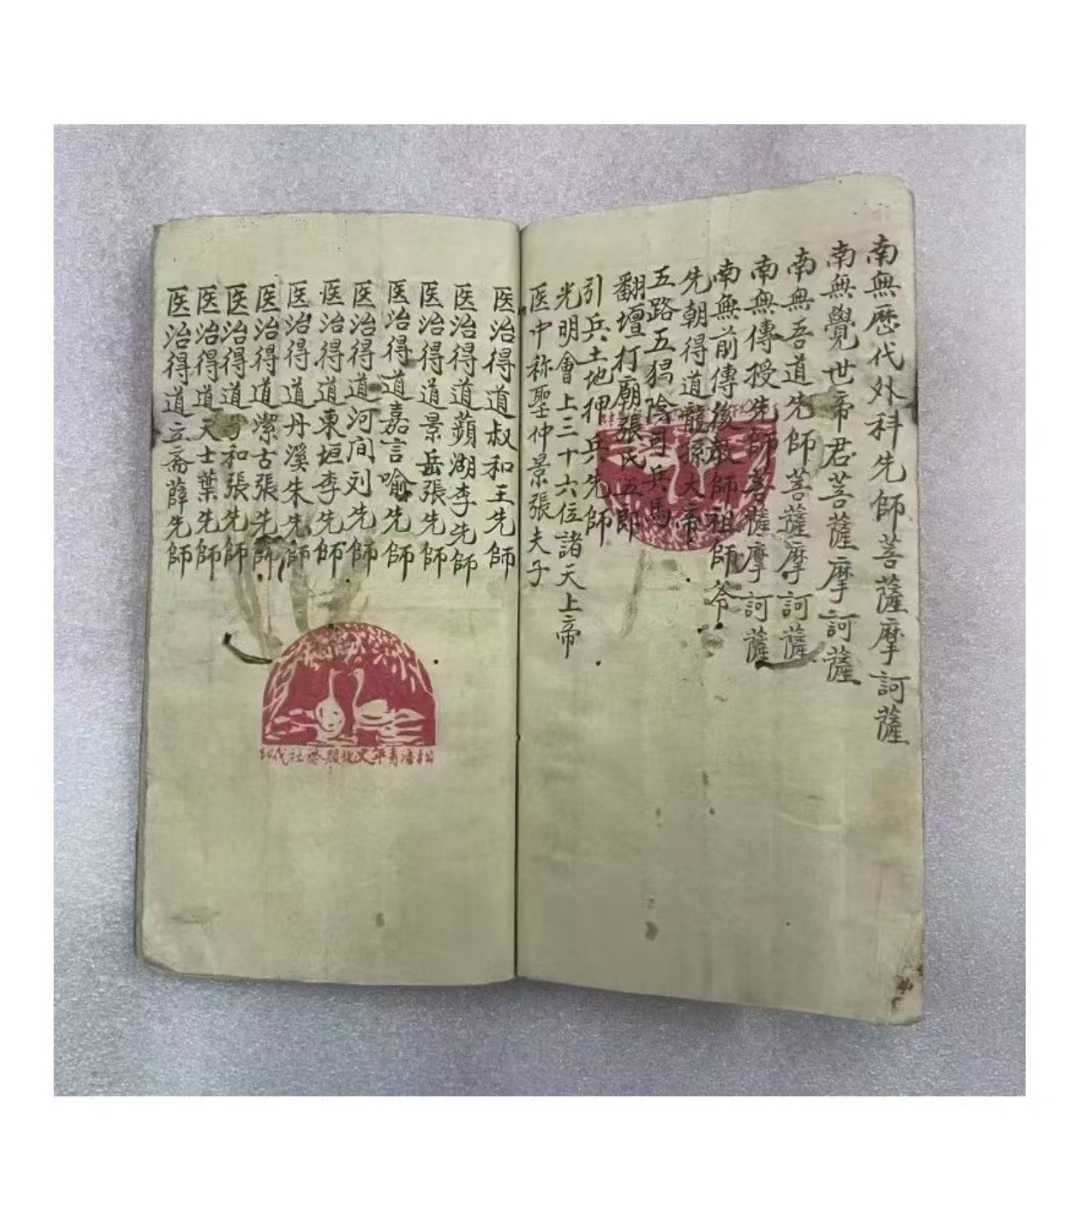 南無歷代外科先師菩薩摩訶薩
南無覺世帝君菩薩摩訶薩
南無吾道先師菩薩摩訶薩
南無傳授先師菩薩摩訶薩
南無前傳後教師祖師爷
先朝得道龍孫大帝
五路五猖陰司兵馬
翻壇打廟張氏五郎
引兵土地押兵先師
光明會上三十六位諸天上帝
医中称聖仲景張夫子
医治得道叔和王先師
医治得道蘋湖李先師
医治得道景岳張先師
医治得道嘉言喻先師
医治得道河间刘先師
医治得道東垣李先師
医治得道丹溪朱先師
医治得道潔古張先師
医治得道子和張先師
医治得道天士葉先師
医治得道立斋薛先師